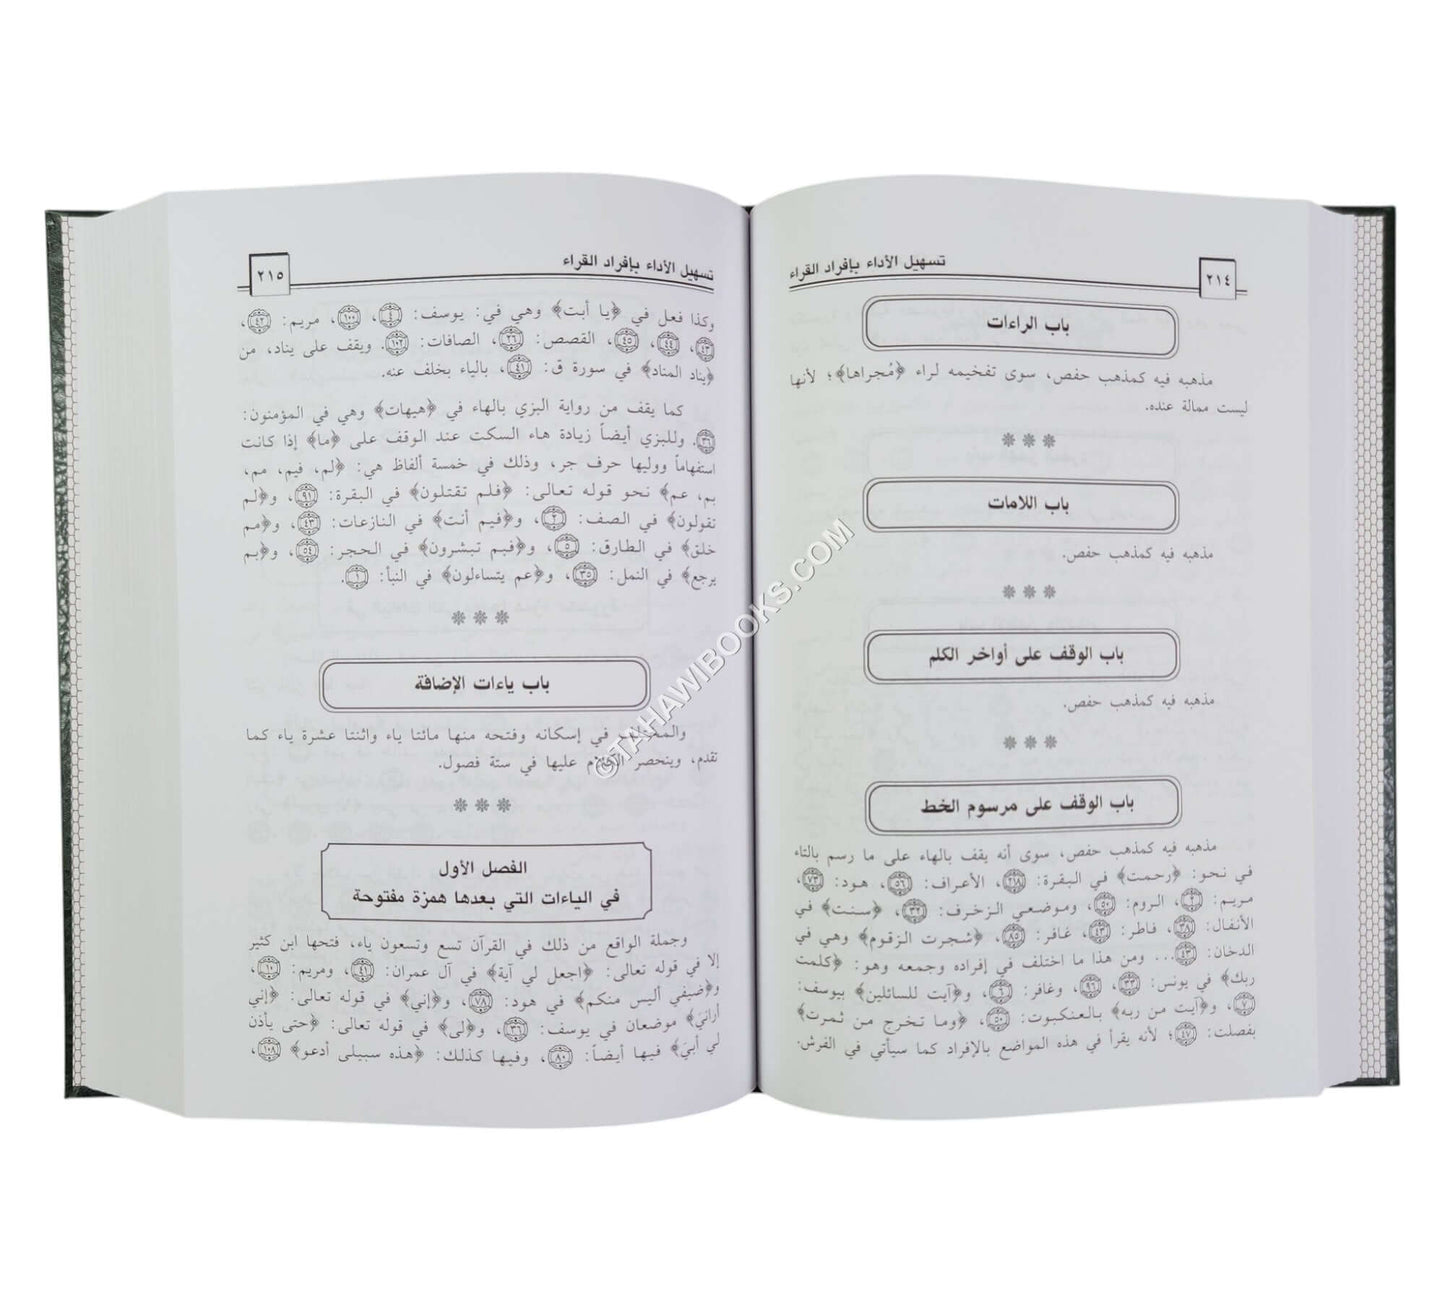 تسهيل الأداء بإفراد القراء
٢١٤
باب الراءات
مذهبه فيه كمذهب حفص، سوى تفخيمه لراء ﴿مُجراها﴾؛ لأنها
ليست ممالة عنده.
باب اللامات
مذهبه فيه كمذهب حفص.
باب الوقف على أواخر الكلم
مذهبه فيه كمذهب حفص.
باب الوقف على مرسوم الخط
مذهبه فيه كمذهب حفص، سوى أنه يقف بالهاء على ما رسم بالتاء
في نحو: ﴿رحمت﴾ في البقرة: ٢١٨، الأعراف: ٥٦، هود: ٧٣،
مريم: ٢، الروم: ٥٠، وموضعي الزخرف: ٣٢، ﴿سنت﴾ في
الأنفال: ٣٨، فاطر: ٤٣، غافر: ٨٥، ﴿شجرت الزقوم﴾ وهي في
الدخان: ٤٣... ومن هذا ما اختلف في إفراده وجمعه وهو: ﴿كلمت
ربك﴾ في يونس: ٣٣، ٩٦، وغافر: ٦، و﴿آيت للسائلين﴾ بيوسف:
٧، و﴿آيت من ربه﴾ بالعنكبوت: ٥٠، ﴿وما تخرج من ثمرت﴾
بفصلت: ٤٧؛ لأنه يقرأ في هذه المواضع بالإفراد كما سيأتي في الفرش.
تسهيل الأداء بإفراد القراء
٢١٥
وكذا فعل في ﴿يا أبت﴾ وهي في: يوسف: ٤، ١٠٠، مريم: ٤٢،
٤٣، ٤٤، ٤٥، القصص: ٢٦، الصافات: ١٠٢. ويقف على يناد، من
﴿يناد المناد﴾ في سورة ق: ٤١، بالياء بخلف عنه.
كما يقف من رواية البزي بالهاء في ﴿هيهات﴾ وهي في المؤمنون:
٣٦. وللبزي أيضاً زيادة هاء السكت عند الوقف على ﴿ما﴾ إذا كانت
استفهاماً ووليها حرف جر، وذلك في خمسة ألفاظ هي: ﴿لم، فيم، مم،
بم، عم﴾ نحو قوله تعالى: ﴿فلم تقتلون﴾ في البقرة: ٩١، و﴿لم
تقولون﴾ في الصف: ٢، و﴿فيم أنت﴾ في النازعات: ٤٣، و﴿مم
خلق﴾ في الطارق: ٥، و﴿فبم تبشرون﴾ في الحجر: ٥٤، و﴿بم
يرجع﴾ في النمل: ٣٥، و﴿عم يتساءلون﴾ في النبأ: ١.
باب ياءات الإضافة
والمختلف في إسكانه وفتحه منها مائتا ياء واثنتا عشرة ياء كما
تقدم، وينحصر الكلام عليها في ستة فصول.
الفصل الأول
في الياءات التي بعدها همزة مفتوحة
وجملة الواقع من ذلك في القرآن تسع وتسعون ياء، فتحها ابن كثير
إلا في قوله تعالى: ﴿اجعل لي آية﴾ في آل عمران: ٤١، ومريم: ١٠،
و﴿ضيفي أليس منكم﴾ في هود: ٧٨، و﴿إني﴾ في قوله تعالى: ﴿إني
أراني﴾ موضعان في يوسف: ٣٦، و﴿لي﴾ في قوله تعالى: ﴿حتى يأذن
لي أبي﴾ فيها أيضاً: ٨٠، وفيها كذلك: ﴿هذه سبيلى أدعو﴾ ١٠٨،
©TAHAWIBOOKS.COM